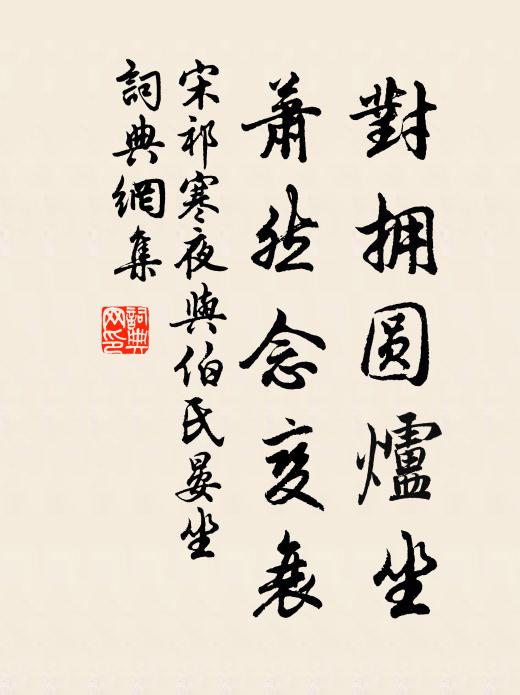 對拥圆爐坐
蕭然念变衰
宋祁寒夜與伯氏晏坐
詞典網集
詞典网印